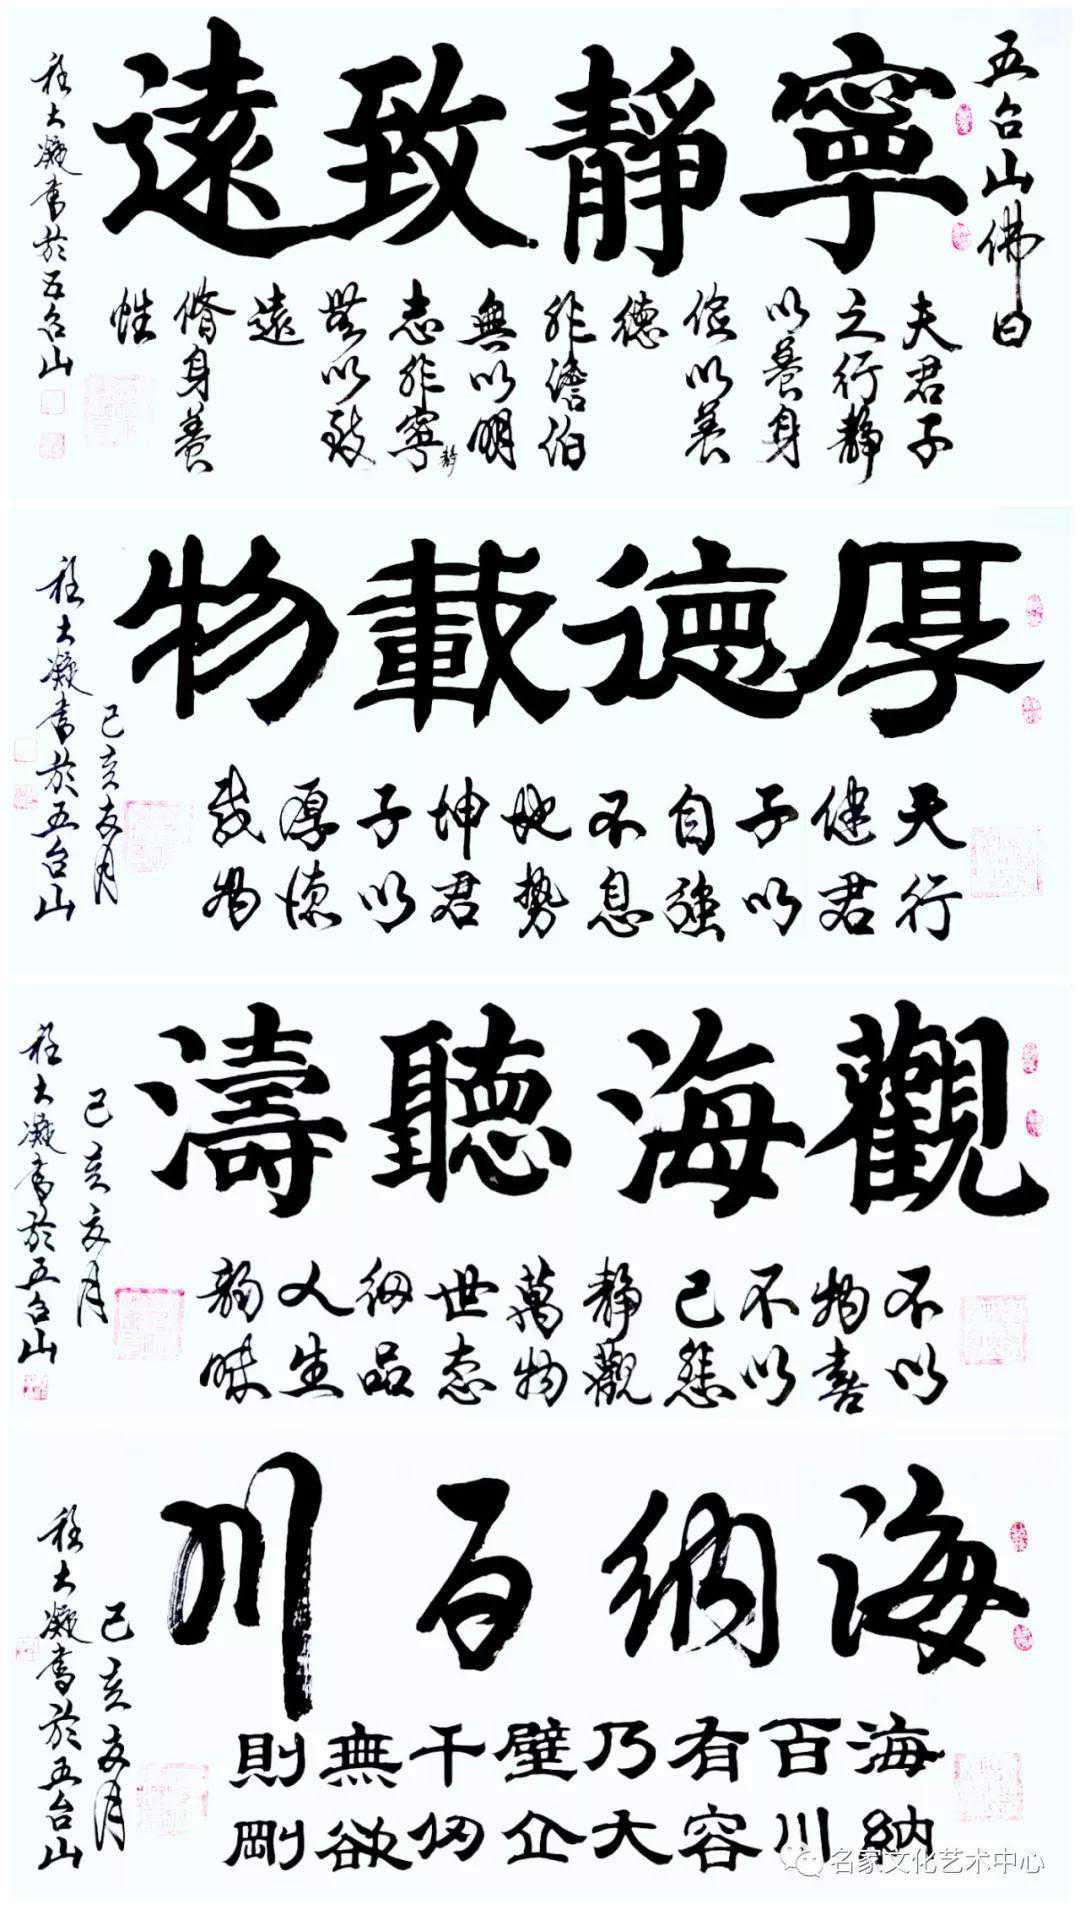 五台山佛曰
寧靜致遠
夫君子
之行静
以養身
儉以養
德
非澹泊
無以明
志非寧静
無以致
遠
脩身養
性
程大凝書於五台山
厚德載物
天行
健君
子以
自強
不息
地势
坤君
子以
厚德
载物
己亥夏月
程大凝書於五台山
觀海聽濤
不以
物喜
不以
己悲
静觀
萬物
世态
细品
人生
韵味
己亥夏月
程大凝書於五台山
海纳百川
海納
百川
有容
乃大
壁立
千仞
無欲
則剛
己亥夏月
程大凝書於五台山
名家文化艺术中心